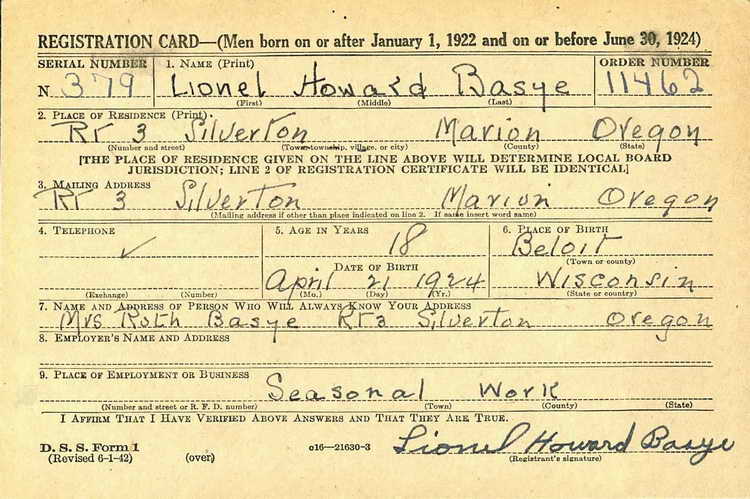 REGISTRATION CARD—(Men born on or after January 1, 1922 and on or before June 30, 1924)
SERIAL NUMBER 1. NAME (Print) ORDER NUMBER
N 379 Lionel Howard Basye 11462
(First) (Middle) (Last)
2. PLACE OF RESIDENCE (Print)
Rt 3 Silverton Marion Oregon
(Number and street) (Town, township, village, or city) (County) (State)
[THE PLACE OF RESIDENCE GIVEN ON THE LINE ABOVE WILL DETERMINE LOCAL BOARD
JURISDICTION; LINE 2 OF REGISTRATION CERTIFICATE WILL BE IDENTICAL]
3. MAILING ADDRESS
Rt 3 Silverton Marion Oregon
(Mailing address if other than place indicated on line 2. If same insert word same)
4. TELEPHONE 5. AGE IN YEARS 6. PLACE OF BIRTH
✓ 18 Beloit
(Town or county)
DATE OF BIRTH
April 21 1924 Wisconsin
(Exchange) (Number) (Mo.) (Day) (Yr.) (State or country)
7. NAME AND ADDRESS OF PERSON WHO WILL ALWAYS KNOW YOUR ADDRESS
Mrs Ruth Basye Rt 3 Silverton Oregon
8. EMPLOYER'S NAME AND ADDRESS
9. PLACE OF EMPLOYMENT OR BUSINESS
Seasonal Work
(Number and street or R. F. D. number) (Town) (County) (State)
I AFFIRM THAT I HAVE VERIFIED ABOVE ANSWERS AND THAT THEY ARE TRUE.
D. S. S. Form 1
(Revised 6-1-42) (over) c16—21630-3 Lionel Howard Basye
(Registrant's signature)